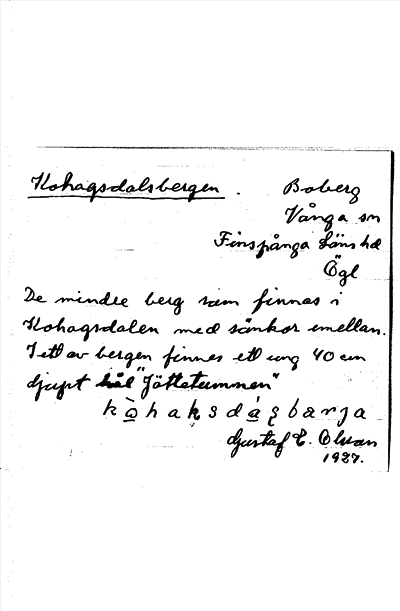 Kohagsdalsbergen. Boberg
Vånga sn
Finspånga läns hd
Ögl
De mindre berg som finnas i
Kohagsdalen med sänkor emellan.
I ett av bergen finnes ett ung 40 cm
djupt hål "Jättetummen"
kò̱haksdá̱ʂbærja
Gustaf E. Olsson
1927.